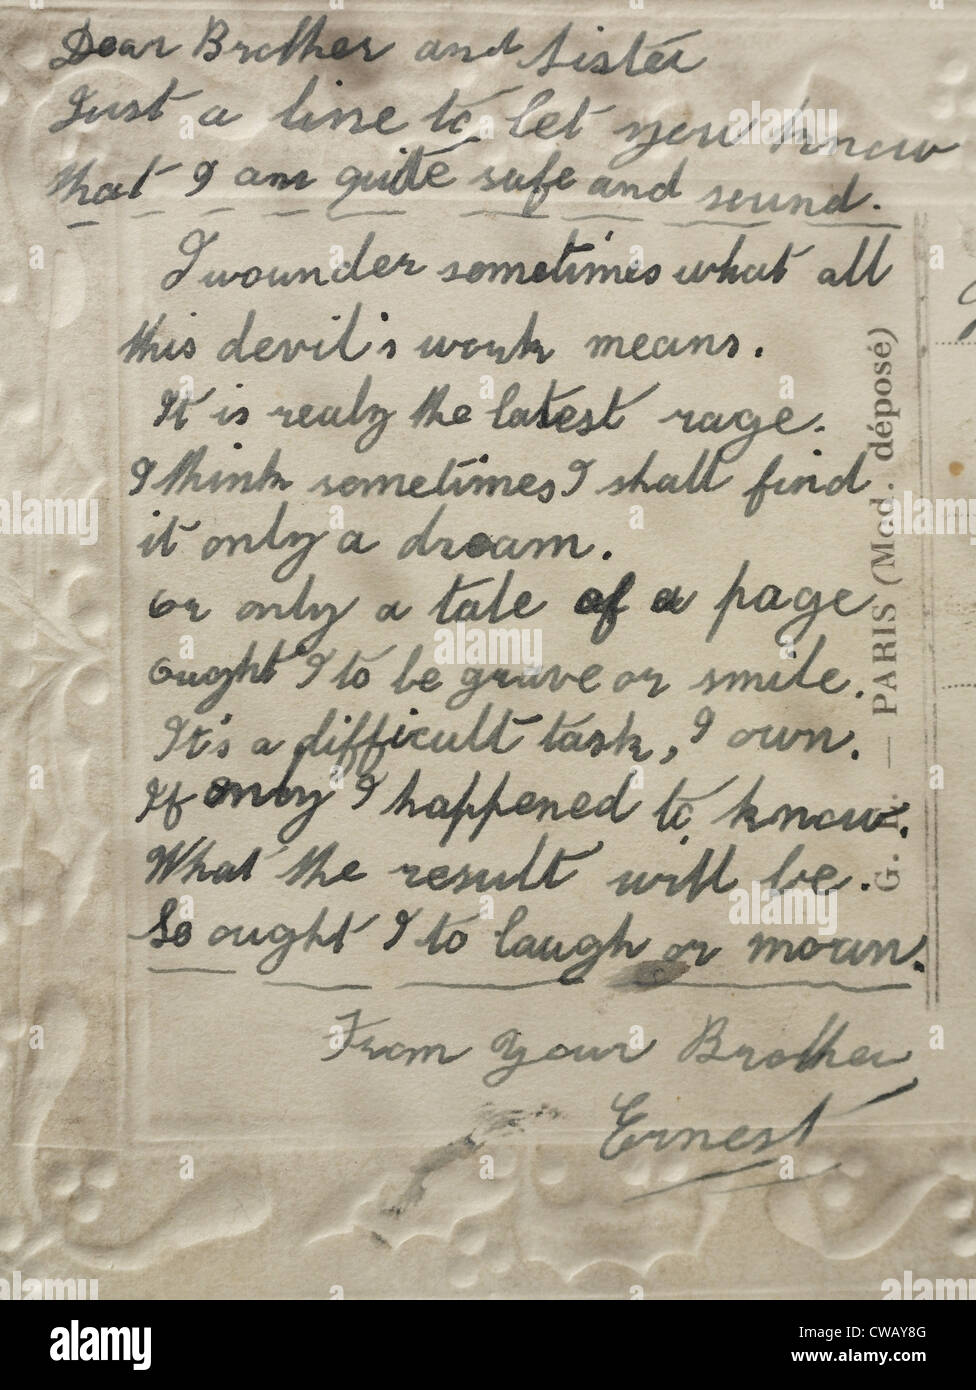 Dear Brother and Sister
Just a line to let you know
that I am quite safe and sound.
I wounder sometimes what all
this devil's work means.
It is realy the latest rage.
I think sometimes I shall find
it only a dream.
or only a tale of a page
ought I to be grave or smile.
It's a difficult task, I own.
If only I happened to know.
What the result will be.
So ought I to laugh or moan.
From Your Brother
Ernest
PARIS (Mod. déposé)
alamy
Image ID: CWAY8G
www.alamy.com